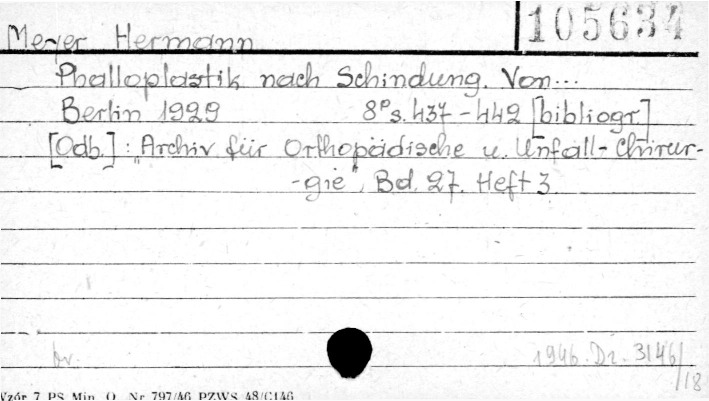 105634
Meyer Hermann
Phalloplastik nach Schindung. Von...
Berlin 1929 8° s. 437-442 [bibliogr]
[Odb.]: "Archiv für Orthopädische u. Unfall-Chirur-
-gie", Bd. 27. Heft 3
br. 1946. Dr. 3146/18
Wzór 7 PS Min. O. Nr 797/46 PZWS 48/C146